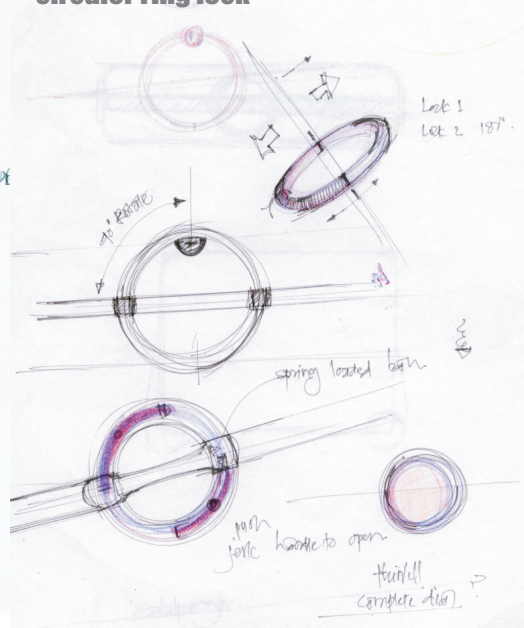 circular ring lock
Lock 1
Lock 2 187°.
90° rotate
spring loaded
push
jerk handle to open
complete disn. ?